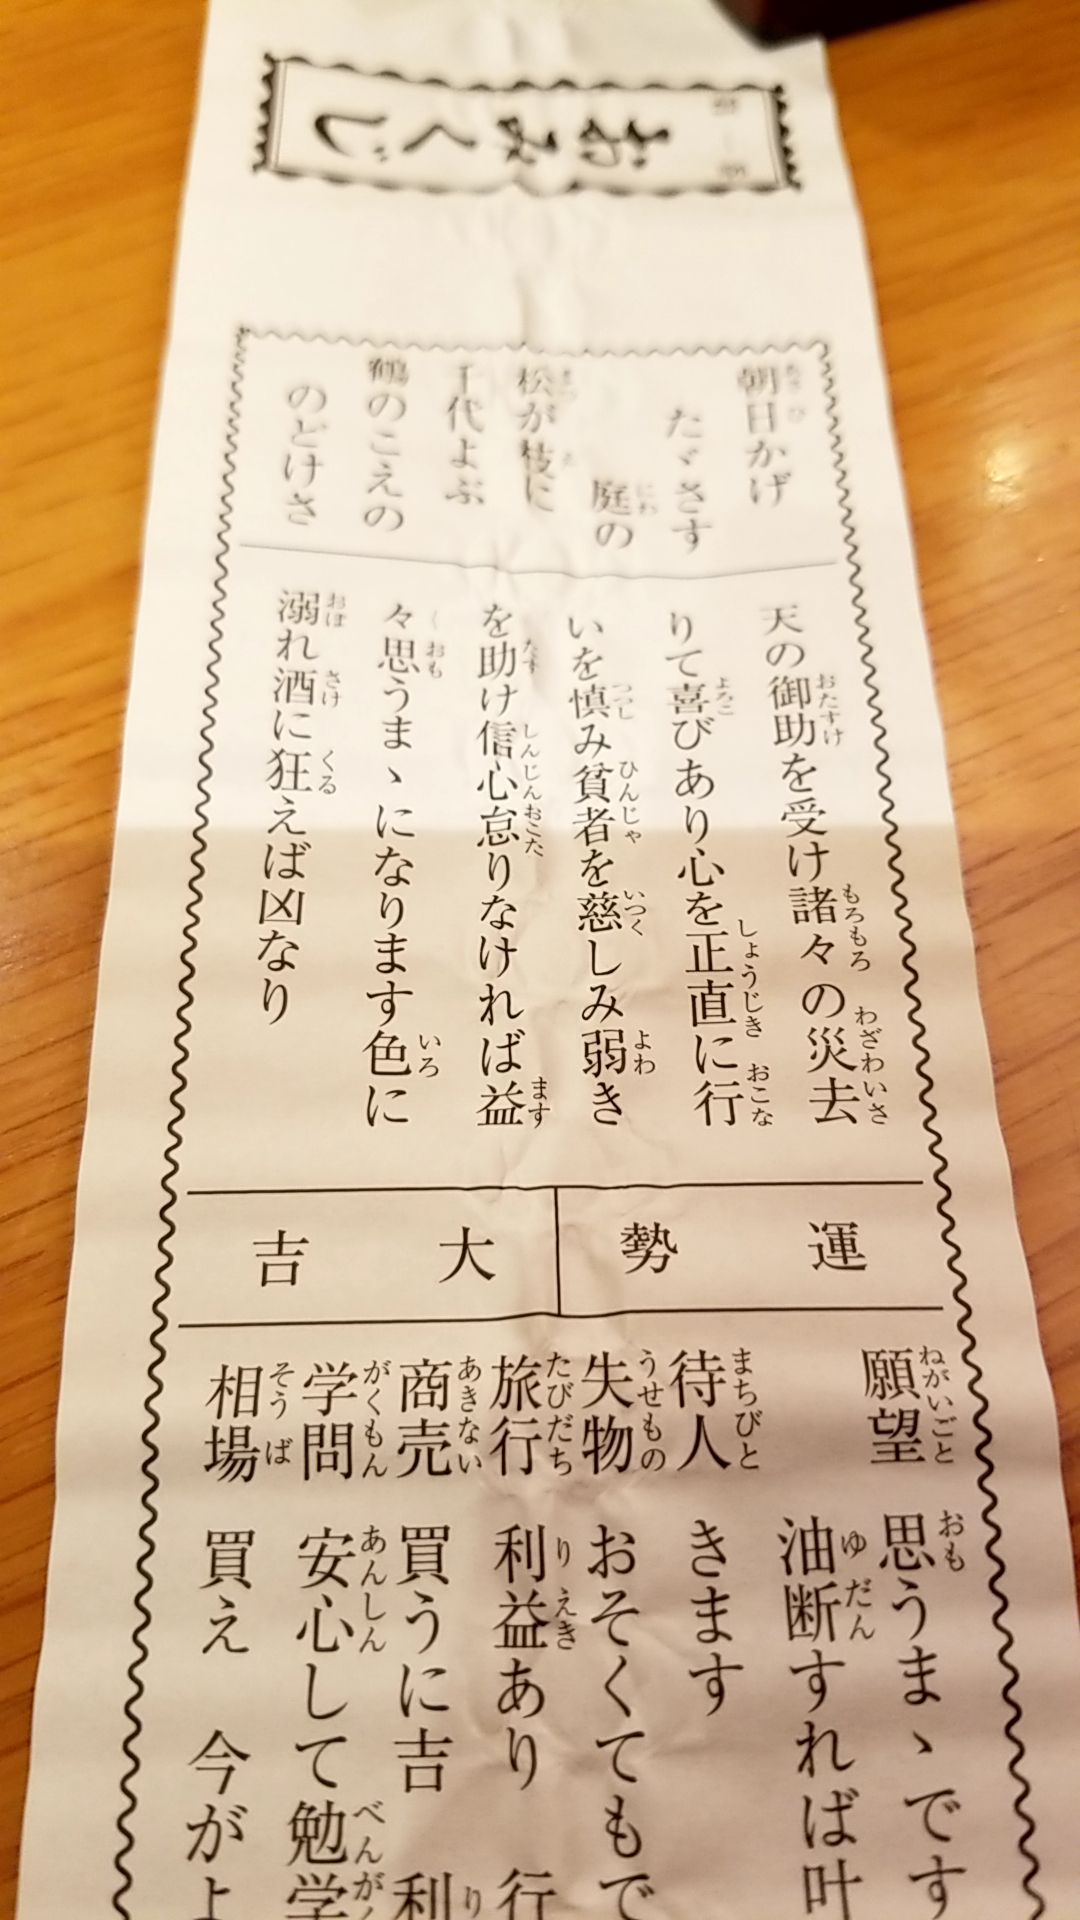 おみくじ
朝日かげ
たゞさす
庭の
松が枝に
千代よぶ
鶴のこえの
のどけさ
天の御助を受け諸々の災去
りて喜びあり心を正直に行
いを慎み貧者を慈しみ弱き
を助け信心怠りなければ益
々思うまゝになります色に
溺れ酒に狂えば凶なり
運勢
大吉
願望 思うまゝです
油断すれば叶
待人 きます
失物 おそくてもで
旅行 利益あり 行
商売 買うに吉 利
学問 安心して勉学
相場 買え 今がよ